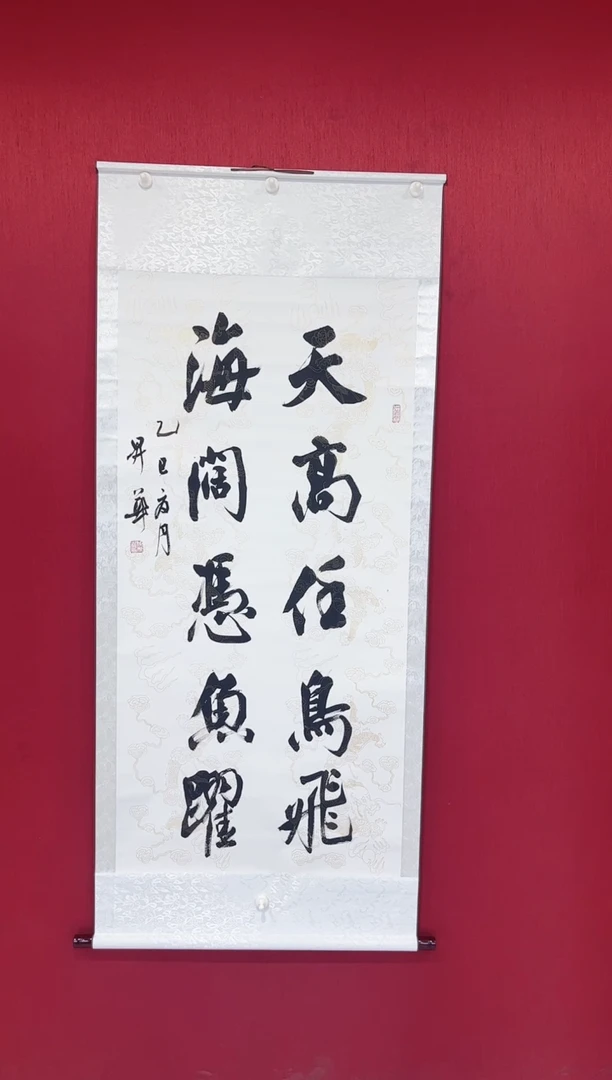 天高任鳥飛
海闊憑魚躍
乙巳
月
昇華